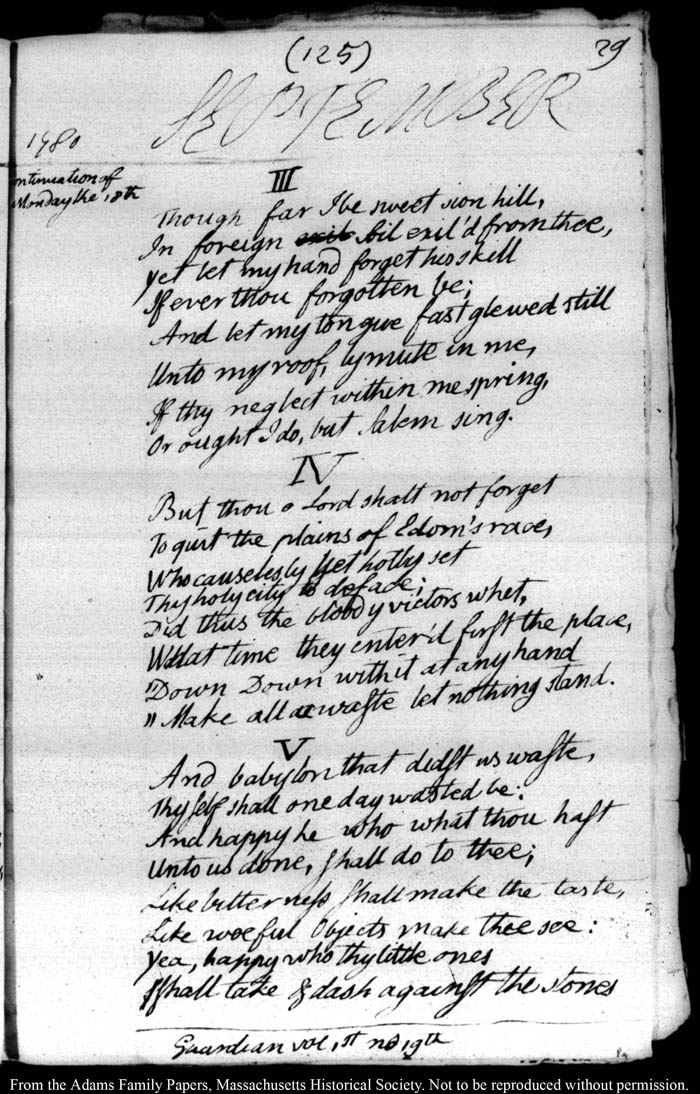 (125)
29
SEPTEMBER
1780
ontinuation of
Monday the 18th
III
Though far I be sweet sion hill,
In foreign exil soil exil'd from thee,
yet let my hand forget his skill
If ever thou forgotten be;
And let my tongue fast glewed still
Unto my roof, ly mute in me,
If thy neglect within me spring,
Or ought I do, but Salem sing.
IV
But thou o Lord shalt not forget
To quit the plains of Edom's race,
Who causelessly yet hotly set
Thy holy city to deface;
Did thus the bloody victors whet,
What time they enter'd first the place,
"Down Down with it at any hand
" Make all a waste let nothing stand.
V
And babylon that didst us waste,
Thyself shall one day wasted be:
And happy he who what thou hast
Unto us done, shall do to thee;
Like bitterness shall make the taste,
Like woeful Objects make thee see:
Yea, happy who thy little ones
Shall take & dash against the stones
Guardian vol 1st no 19th
From the Adams Family Papers, Massachusetts Historical Society. Not to be reproduced without permission.